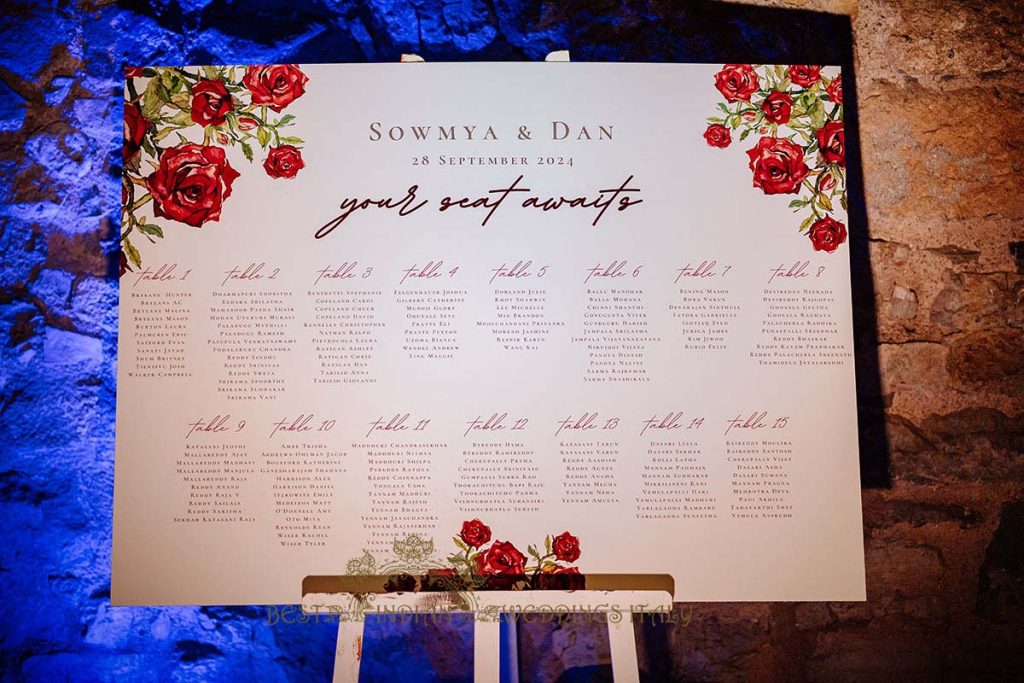 SOWMYA & DAN
28 SEPTEMBER 2024
your seat awaits
table 1
BRYEANS HUNTER
BRYEANS AC
BRYEANS MALINA
BRYEANS MASON
BURTON LAURA
PALEN ERIC
SAFFORD EVAN
SANATI JAVAD
SHUM BRITNEY
TIENSIVU JOSH
WALKER CAMPBELL
table 2
DHARMAPURI SHORITHA
EEDARA SRILATHA
MAHANOOR PASHA SHAIK
MOHAN JUTURU MURALI
PALADUGU MYTHILLI
PALADUGU RAMESH
PASUPULA VENKATASWAMY
PODALAKURU CHANDRA
REDDY SINDHU
REDDY SRINIVAS
REDDY SWETA
SRIRAMA SPOORTHY
SRIRAMA SUDHAKAR
SRIRAMA VANI
table 3
BENEDETTI STEPHANIE
COPELAND CAROL
COPELAND CHUCK
COPELAND DAVID
KENNELLY CHRISTOPHER
NATHAN KATE
PIETROCOLA LAURA
RATIGAN ASHLEY
RATIGAN CHRIS
RATIGAN DAN
TABILIO ANNA
TABILIO GIOVANNI
table 4
FELGENHAUER JOSHUA
GILBERT CATHERINE
MCHOJI GLORY
ODUYALE SEYE
PRATTE ELI
PRATTE PEYTON
UZOMA BIANCA
WENDEL ANDREW
XING MAGGIE
table 5
DORLAND JULIE
KHOT SHARWIN
LEE MICHELLE
MIN BRANDON
MOOLCHANDANI PRIYANKA
MORENO JASMINE
RESNIK KAREN
WANG RAY
table 6
BALLU MANOHAR
BALLU MOHANA
CHINNI SRASTHI
GONUGUNTA VIVEK
GUNIBURU HARISH
JAMPALA SRILATHA
JAMPALA VIJAYANARAYANA
NIKUDIYO VIJAYA
PANDYA DINESH
PANDYA NALINI
SAKHA RAJKUMAR
SAKHA SHASHIKALA
table 7
BENING MASON
BORA VARUN
DEVARAJAN SINDHUJA
FATORA GABRIELLE
ISHTIAQ SYED
JURICA JAMES
KIM JIWOO
RUBIO FELIX
table 8
DEVIREDDY NEERADA
DEVIREDDY RAJGOPAL
GHOSALA GEETHA
GHOSALA RAGHAVA
PALACHERLA RADHIKA
PUNATI SRINIVASULU
REDDY BHASKAR
REDDY KAVYA PRABHAKAR
REDDY PALACHERLA SREENATH
THAMIDELA JAYALAKSHMI
table 9
KATASANI JHANVI
MALLAREDDY AJAY
MALLAREDDY MADHAVI
MALLAREDDY MANJULA
MALLAREDDY RAJ
REDDY ANAND
REDDY RAJA V
REDDY RAJU
REDDY SARITHA
SEKHAR KATASANI RAJA
table 10
AMBE TRISHA
ANDREWS-OHLMAN JACOB
BOGUZORF KATHERINE
GANESHARAJAH SHARANA
HARRISON ALLY
HARRISON DANIEL
ITZKOWITZ EMILY
MEDITZ MATT
O'DONNELL AMY
OTO MIYA
REYNOLDS EVAN
WISER RACHEL
WISER TYLER
table 11
MADDHURI CHANDRASEKHAR
MADDHURI NITHYA
MADDHURI SHILPA
PIREDDY RATHNA
REDDY CHINNAPPA
VONGALA USHA
YANNAM MADHURI
YANNAM RAJESH
YENNAM BHAGYA
YENNAM JAYACHANDRA
YENNAM RAJASEKHAR
YENNAM REGINA
YENNAM
table 12
BYREDDY HYMA
BYREDDY RAMIREDDY
CHERUPALLY PREMA
CHERUPALLY SRINIVASU
GEMPALLI SUBBA RAO
THOKACHITCHU BAPI RAJU
THOKACHITCHU PADMA
VISHNUBHATLA SUBANSIRI
VISHNUBHATLA SURESH
table 13
KATASANI TARUN
KATASANI VARUN
REDDY AARUSH
REDDY AGNES
REDDY ANUHA
YANNAM MEGHA
YANNAM NEHA
YENNAM ASHLEY
table 14
DASARI LEELA
DASARI SEKHAR
KOLLI LATHA
MANNAM PADMAJA
MANNAM SUDHAKAR
MUKKENENI RANI
YEMULAPALLI HARI
VEMULA MADHURI
YARLAGADDA RAMBABU
YARLAGADDA SUNEETHA
table 15
BAIREDDY MOULIKA
BAIREDDY SANTOSH
CHERUPALLY VIJAY
DASARI ASHA
DASARI SUMANA
MANNAM PRAGNA
MEHROTRA DEVI
PAOI AKHILA
TADAVARTHI SHEZ
VEMULA ANIRUDH
BEST INDIAN WEDDINGS ITALY